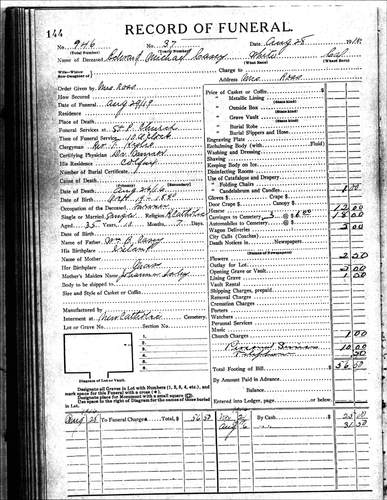 144
RECORD OF FUNERAL.
No. 946 No. 37 Date, Aug 25 19
(Total Number) (Yearly Number)
Name of Deceased Edward Michael Casey White Cal
(What Race) (Where Born)
Wife—Widow Charge to
Son-Daughter of Address Mrs Ross
Order Given by Mrs Ross
How Secured
Date of Funeral Aug 29/19
Residence
Place of Death
Funeral Services at St P. Church
Time of Funeral Service 10 o'clock
Clergyman Rev
Certifying Physician
His Residence Colfax
Number of Burial Certificate
Cause of Death
(Primary) (Secondary)
Date of Death Aug 24/16
Date of Birth
Occupation of the Deceased
Single or Married Single Religion Catholic
Aged 35 Years, 10 Months, 7 Days.
Date of Birth
Name of Father Wm B. Casey
His Birthplace Ireland
Name of Mother
Her Birthplace Iowa
Mother's Maiden Name
Body to be shipped to
Size and Style of Casket or Coffin
Manufactured by
Interment at New Catholic Cemetery.
Lot or Grave No. Section No.
1
2
3
4
5
6
7
8
Diagram of Lot or Vault.
Designate all Graves in Lot with Numbers (1, 2, 3, 4, etc.), and
mark space for this Funeral with a cross (+).
Designate place for Monument with a small square
Use space to the right of Diagram for the names of those buried
in Lot.
Price of Casket or Coffin
(State kind)
" Metallic Lining
(State kind)
" Outside Box
(State kind)
" Grave Vault
(State kind)
" Burial Robe
(State kind)
" Burial Slippers and Hose
Engraving Plate
Embalming Body (with Fluid)
Washing and Dressing
Shaving
Keeping Body on Ice
Disinfecting Rooms
Use of Catafalque and Drapery
" Folding Chairs
" Candelabrum and Candles 1 00
Gloves $ Crape $
Door Crape $ Canopy $
Hearse 12 00
Carriages to Cemetery 3 @ $6.00 18 00
Automobiles to Cemetery @ $
Wagon Deliveries 2 00
City Calls (Coaches)
Death Notices in Newspapers
(Names of Newspapers)
Flowers 2 50
Outlay for Lot
Opening Grave or Vault
Lining Grave 1 50
Vault Rental
Shipping Charges, prepaid
Removal Charges
Cremation Charges
Porters
Watchers
Personal Services
Music
Church Charges 1 00
Personal Services 10 00
50
Total Footing of Bill $ 56 50
By Amount Paid in Advance
Balance
Entered into Ledger, page or below.
Aug 25 To Funeral Charges Total, $ 56 50 By Cash 25 00
Aug 31 50